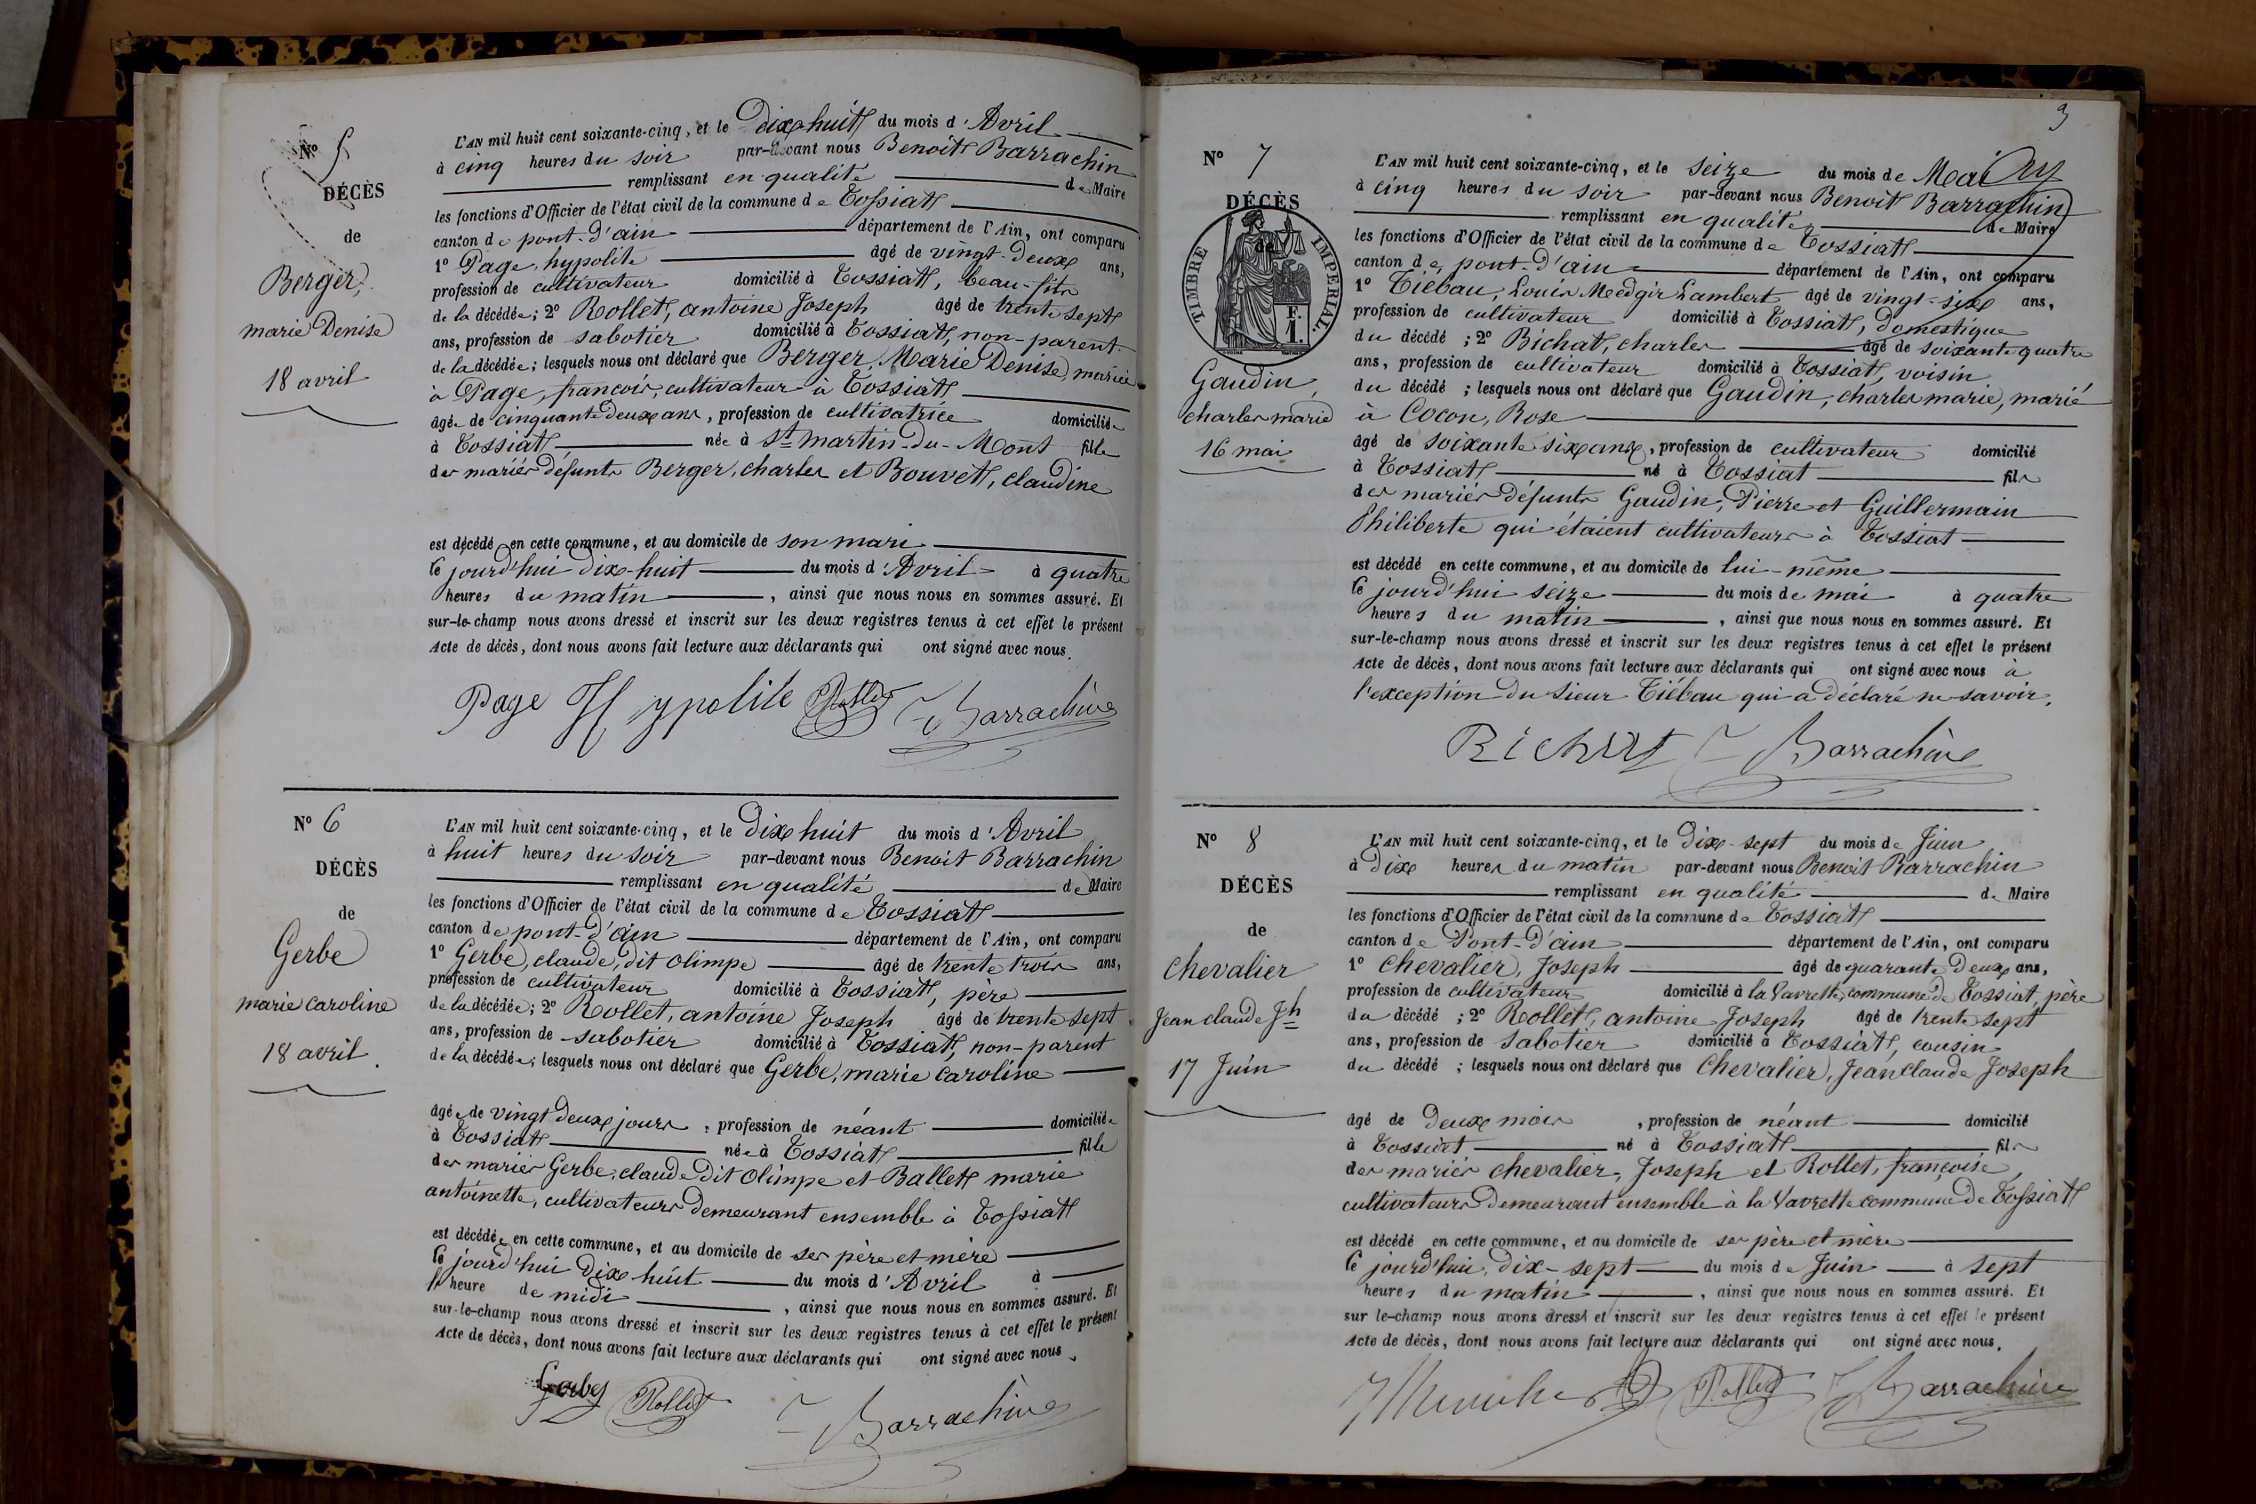 N° 5
DÉCÈS
de
Berger,
marie Denise
18 avril
L'AN mil huit cent soixante-cinq, et le Dix huit du mois d'Avril
à cinq heures du soir par-devant nous Benoit Barrachin
remplissant en qualité de Maire
les fonctions d'Officier de l'état civil de la commune de Tossiat
canton de pont-d'ain département de l'Ain, ont comparu
1° Page, hypolite âgé de vingt-deux ans,
profession de cultivateur domicilié à Tossiat, beau-fils
de la décédée; 2° Rollet, antoine Joseph âgé de trente sept
ans, profession de sabotier domicilié à Tossiat, non-parent
de la décédée; lesquels nous ont déclaré que Berger, Marie Denise, mariée
à Page, françois, cultivateur à Tossiat
âgée de cinquante deux ans, profession de cultivatrice domiciliée
à Tossiat née à St martin-du-Mont fille
des mariés défunts Berger, charles et Bouvet, claudine
est décédé en cette commune, et au domicile de son mari
Ce jourd'hui Dix-huit du mois d'Avril à quatre
heures du matin, ainsi que nous nous en sommes assuré. Et
sur-le-champ nous avons dressé et inscrit sur les deux registres tenus à cet effet le présent
Acte de décès, dont nous avons fait lecture aux déclarants qui ont signé avec nous.
Page Hypolite Rollet Barrachin
N° 6
DÉCÈS
de
Gerbe
marie caroline
18 avril.
L'AN mil huit cent soixante-cinq, et le Dix huit du mois d'Avril
à huit heures du soir par-devant nous Benoit Barrachin
remplissant en qualité de Maire
les fonctions d'Officier de l'état civil de la commune de Tossiat
canton de pont-d'ain département de l'Ain, ont comparu
1° Gerbe, claude, dit olimpe âgé de trente trois ans,
profession de cultivateur domicilié à Tossiat, père
de la décédée; 2° Rollet, antoine Joseph âgé de trente sept
ans, profession de sabotier domicilié à Tossiat, non-parent
de la décédée; lesquels nous ont déclaré que Gerbe, marie caroline
âgée de vingt deux jours, profession de néant domiciliée
à Tossiat née à Tossiat fille
des mariés Gerbe, claude dit olimpe et Ballet marie
antoinette, cultivateurs demeurant ensemble à Tossiat
est décédée en cette commune, et au domicile de ses père et mère
Ce jourd'hui Dix huit du mois d'Avril à
heure de midi, ainsi que nous nous en sommes assuré. Et
sur-le-champ nous avons dressé et inscrit sur les deux registres tenus à cet effet le présent
Acte de décès, dont nous avons fait lecture aux déclarants qui ont signé avec nous.
Gerbe Rollet Barrachin
3
N° 7
DÉCÈS
de
TIMBRE IMPÉRIAL.
F.
1.
Gaudin,
charles marie
16 mai
L'AN mil huit cent soixante-cinq, et le seize du mois de Mai
à cinq heures du soir par-devant nous Benoit Barrachin
remplissant en qualité de Maire
les fonctions d'Officier de l'état civil de la commune de Tossiat
canton de pont-d'ain département de l'Ain, ont comparu
1° Tiébau, Louis Lambert âgé de vingt-six ans,
profession de cultivateur domicilié à Tossiat, domestique
du décédé; 2° Bichat, charles âgé de soixante quatre
ans, profession de cultivateur domicilié à Tossiat, voisin
du décédé; lesquels nous ont déclaré que Gaudin, charles marie, marié
à Cocon, Rose
âgé de soixante six ans, profession de cultivateur domicilié
à Tossiat né à Tossiat fils
des mariés défunts Gaudin, Pierre et Guillermain
Philiberte qui étaient cultivateurs à Tossiat
est décédé en cette commune, et au domicile de lui-même
Ce jourd'hui seize du mois de mai à quatre
heures du matin, ainsi que nous nous en sommes assuré. Et
sur-le-champ nous avons dressé et inscrit sur les deux registres tenus à cet effet le présent
Acte de décès, dont nous avons fait lecture aux déclarants qui ont signé avec nous à
l'exception du sieur Tiébau qui a déclaré ne savoir.
Bichat Barrachin
N° 8
DÉCÈS
de
Chevalier
Jean claude Jh
17 Juin
L'AN mil huit cent soixante-cinq, et le Dix-sept du mois de Juin
à Dix heures du matin par-devant nous Benoit Barrachin
remplissant en qualité de Maire
les fonctions d'Officier de l'état civil de la commune de Tossiat
canton de Pont-d'ain département de l'Ain, ont comparu
1° Chevalier, Joseph âgé de quarante Deux ans,
profession de cultivateur domicilié à la Vavrette, commune de Tossiat, père
du décédé; 2° Rollet, antoine Joseph âgé de trente sept
ans, profession de sabotier domicilié à Tossiat, cousin
du décédé; lesquels nous ont déclaré que Chevalier, Jean claude Joseph
âgé de Deux mois, profession de néant domicilié
à Tossiat né à Tossiat fils
des mariés chevalier, Joseph et Rollet, françoise,
cultivateurs demeurant ensemble à la Vavrette commune de Tossiat
est décédé en cette commune, et au domicile de ses père et mère
Ce jourd'hui dix-sept du mois de Juin à sept
heures du matin, ainsi que nous nous en sommes assuré. Et
sur le-champ nous avons dressé et inscrit sur les deux registres tenus à cet effet le présent
Acte de décès, dont nous avons fait lecture aux déclarants qui ont signé avec nous.
Rollet Barrachin